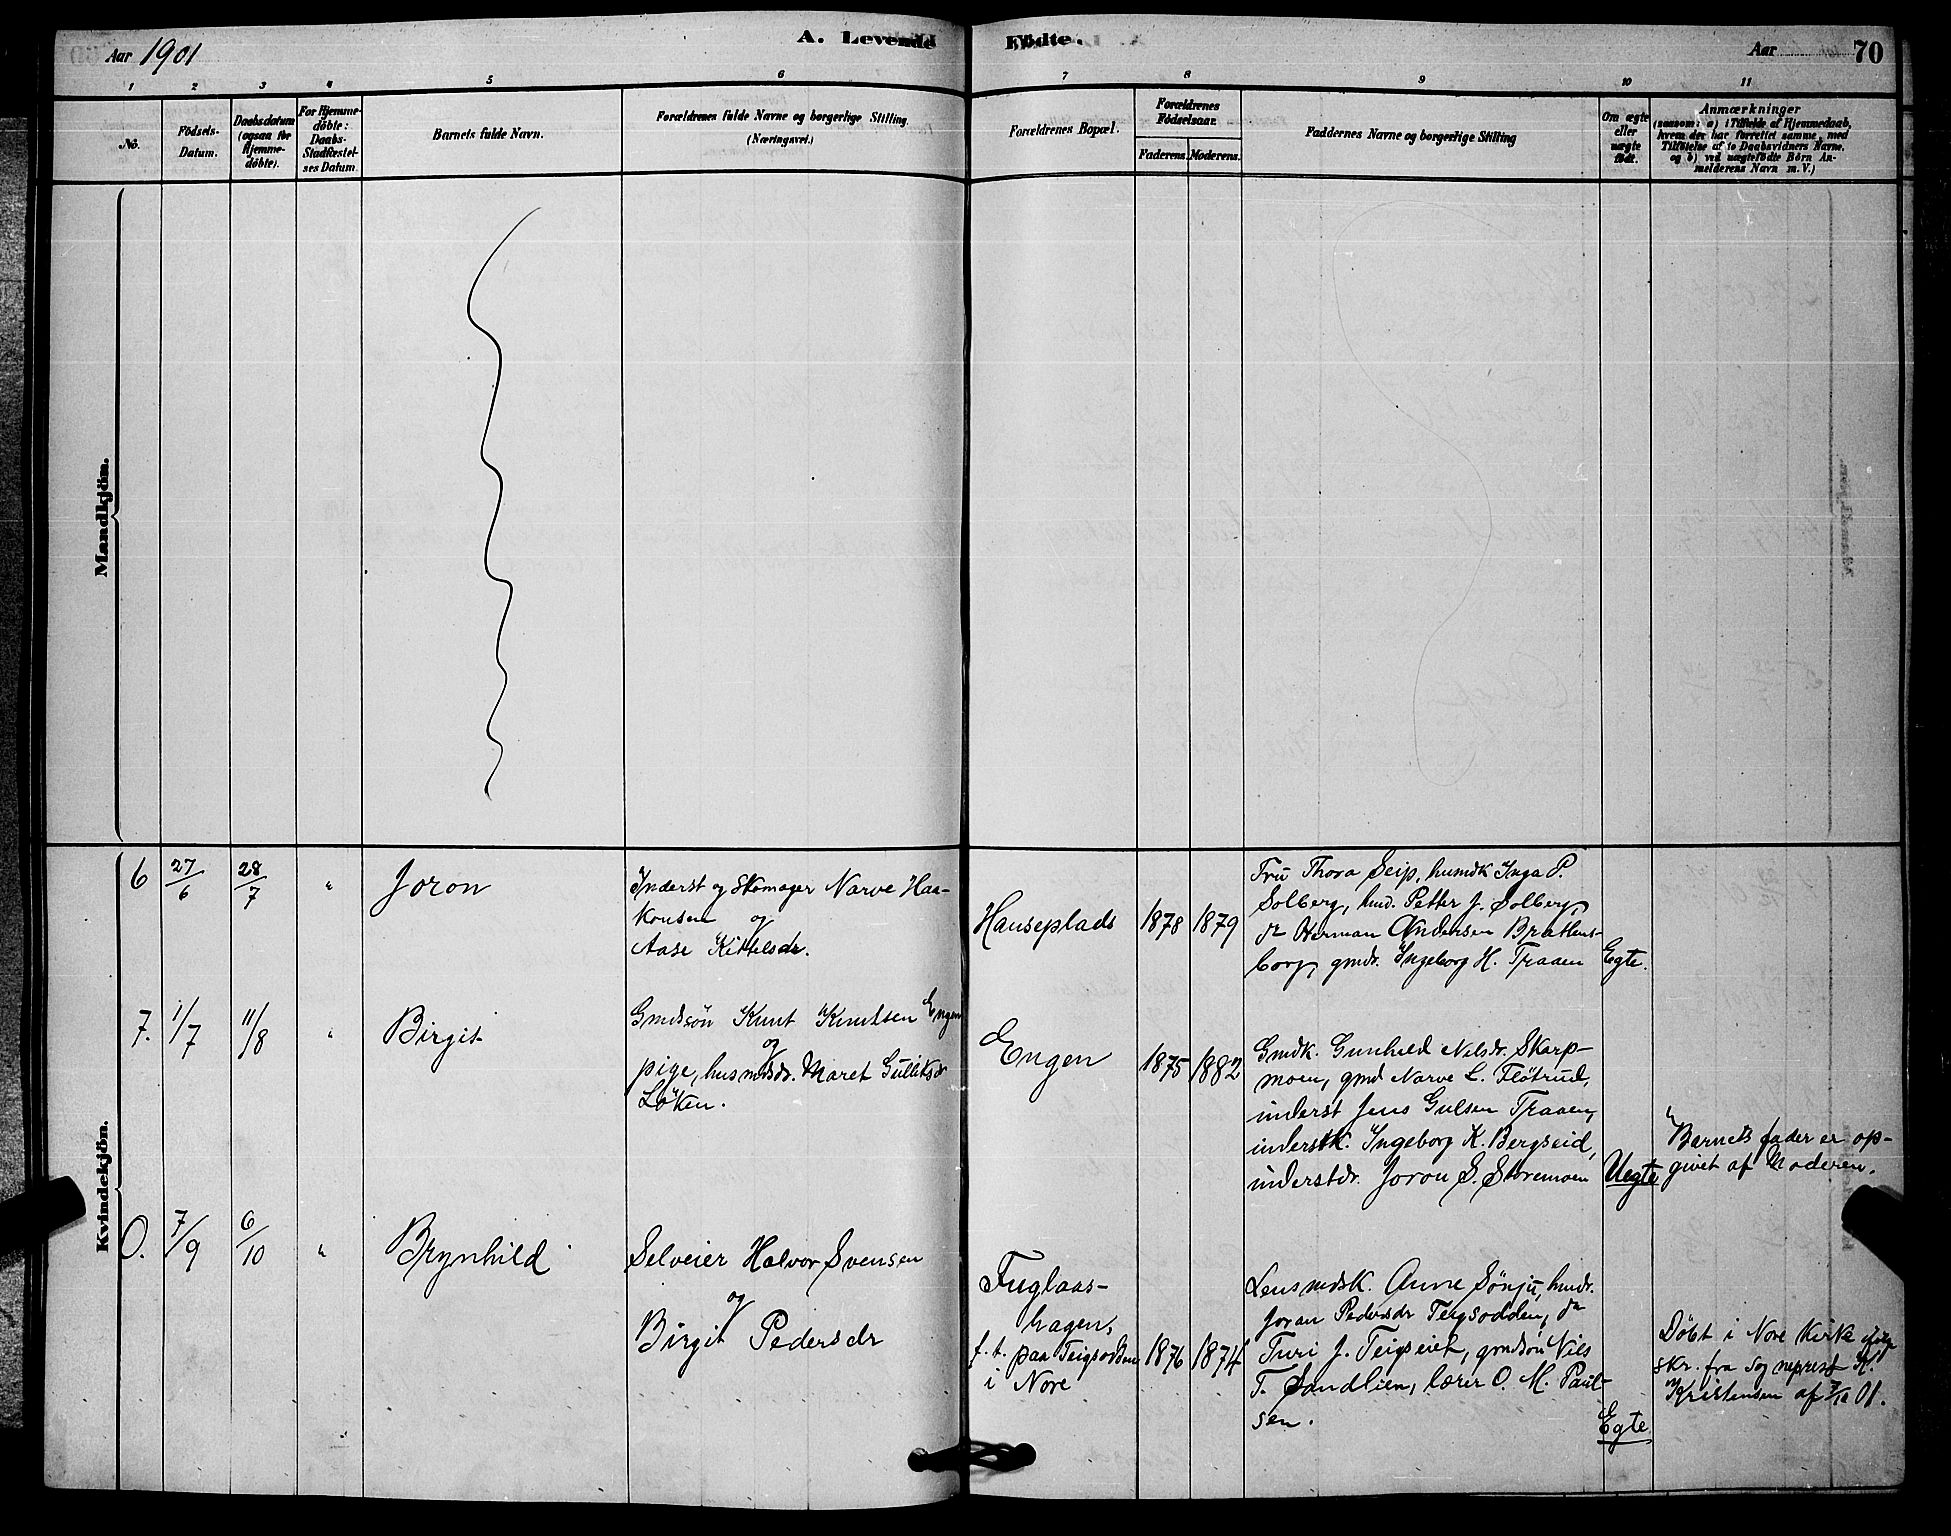 Aar 1901
A. Levende Födte.
Aar 70
1 2 3 4 5 6 7 8 9 10 11
No.
Födsels-
Datum.
Daabsdatum
(ogsaa for
Hjemme-
döbte).
For Hjemme-
döbte:
Daabs-
Stadfæstel-
ses Datum.
Barnets fulde Navn.
Forældrenes fulde Navne og borgerlige Stilling
(Næringsvei.)
Forældrenes Bopæl.
Forældrenes
Födselsaar.
Faderens. Moderens.
Faddernes Navne og borgerlige Stilling
Om ægte
eller
uægte
födt.
Anmærkninger
(saasom: a) i Tilfælde af Hjemmedaab,
hvem der har forrettet samme, med
Tilföielse af to Daabsvidners Navne,
og b) ved uægtefödte Börn An-
melderens Navn m. V.)
Mandkjön.
Kvindekjön.
6
27/6
28/7
"
Joron
Inderst og Skomager Narve Haa-
konsen og
Aase Kittelsdr.
Hanseplads
1878
1879
Fru Thora Seip, husmdk Inga P.
Solberg, husmd. Petter J. Solberg,
do Herman Andersen Brathens-
borg, gmdr. Ingeborg H. Traaen
Egte.
7.
1/7
11/8
"
Birgit
Gmdssön Knut Knutsen Engen
og
pige, husmdsdr. Maret Gulliksdr
Löken.
Engen
1875
1882
Gmdk. Gunhild Nilsdr. Skarp-
moen, gmd Narve L. Flötrud,
inderst Jens Gulsen Traaen,
inderstk. Ingeborg K. Bergseid,
inderstdr. Joron S. Storemoen
Uegte
Barnets fader er op-
givet af Moderen.
O.
7/9
6/10
"
Brynhild
Selveier Halvor Svensen
og
Birgit Pedersdr
Fuglaas-
hagen,
f. t. paa Teigsodden
i Nore
1876
1874
Lensmdsk. Anne Sönju, husdr.
Joran Pedersdr Teigsodden, do
Turi J. Teigseiet, gmdsön Nils
T. Sandlien, lærer O. M. Paul-
sen.
Egte
Döbt i Nore Kirke ifölge
skr. fra Sogneprest K.
Kristensen af 7/10 01.